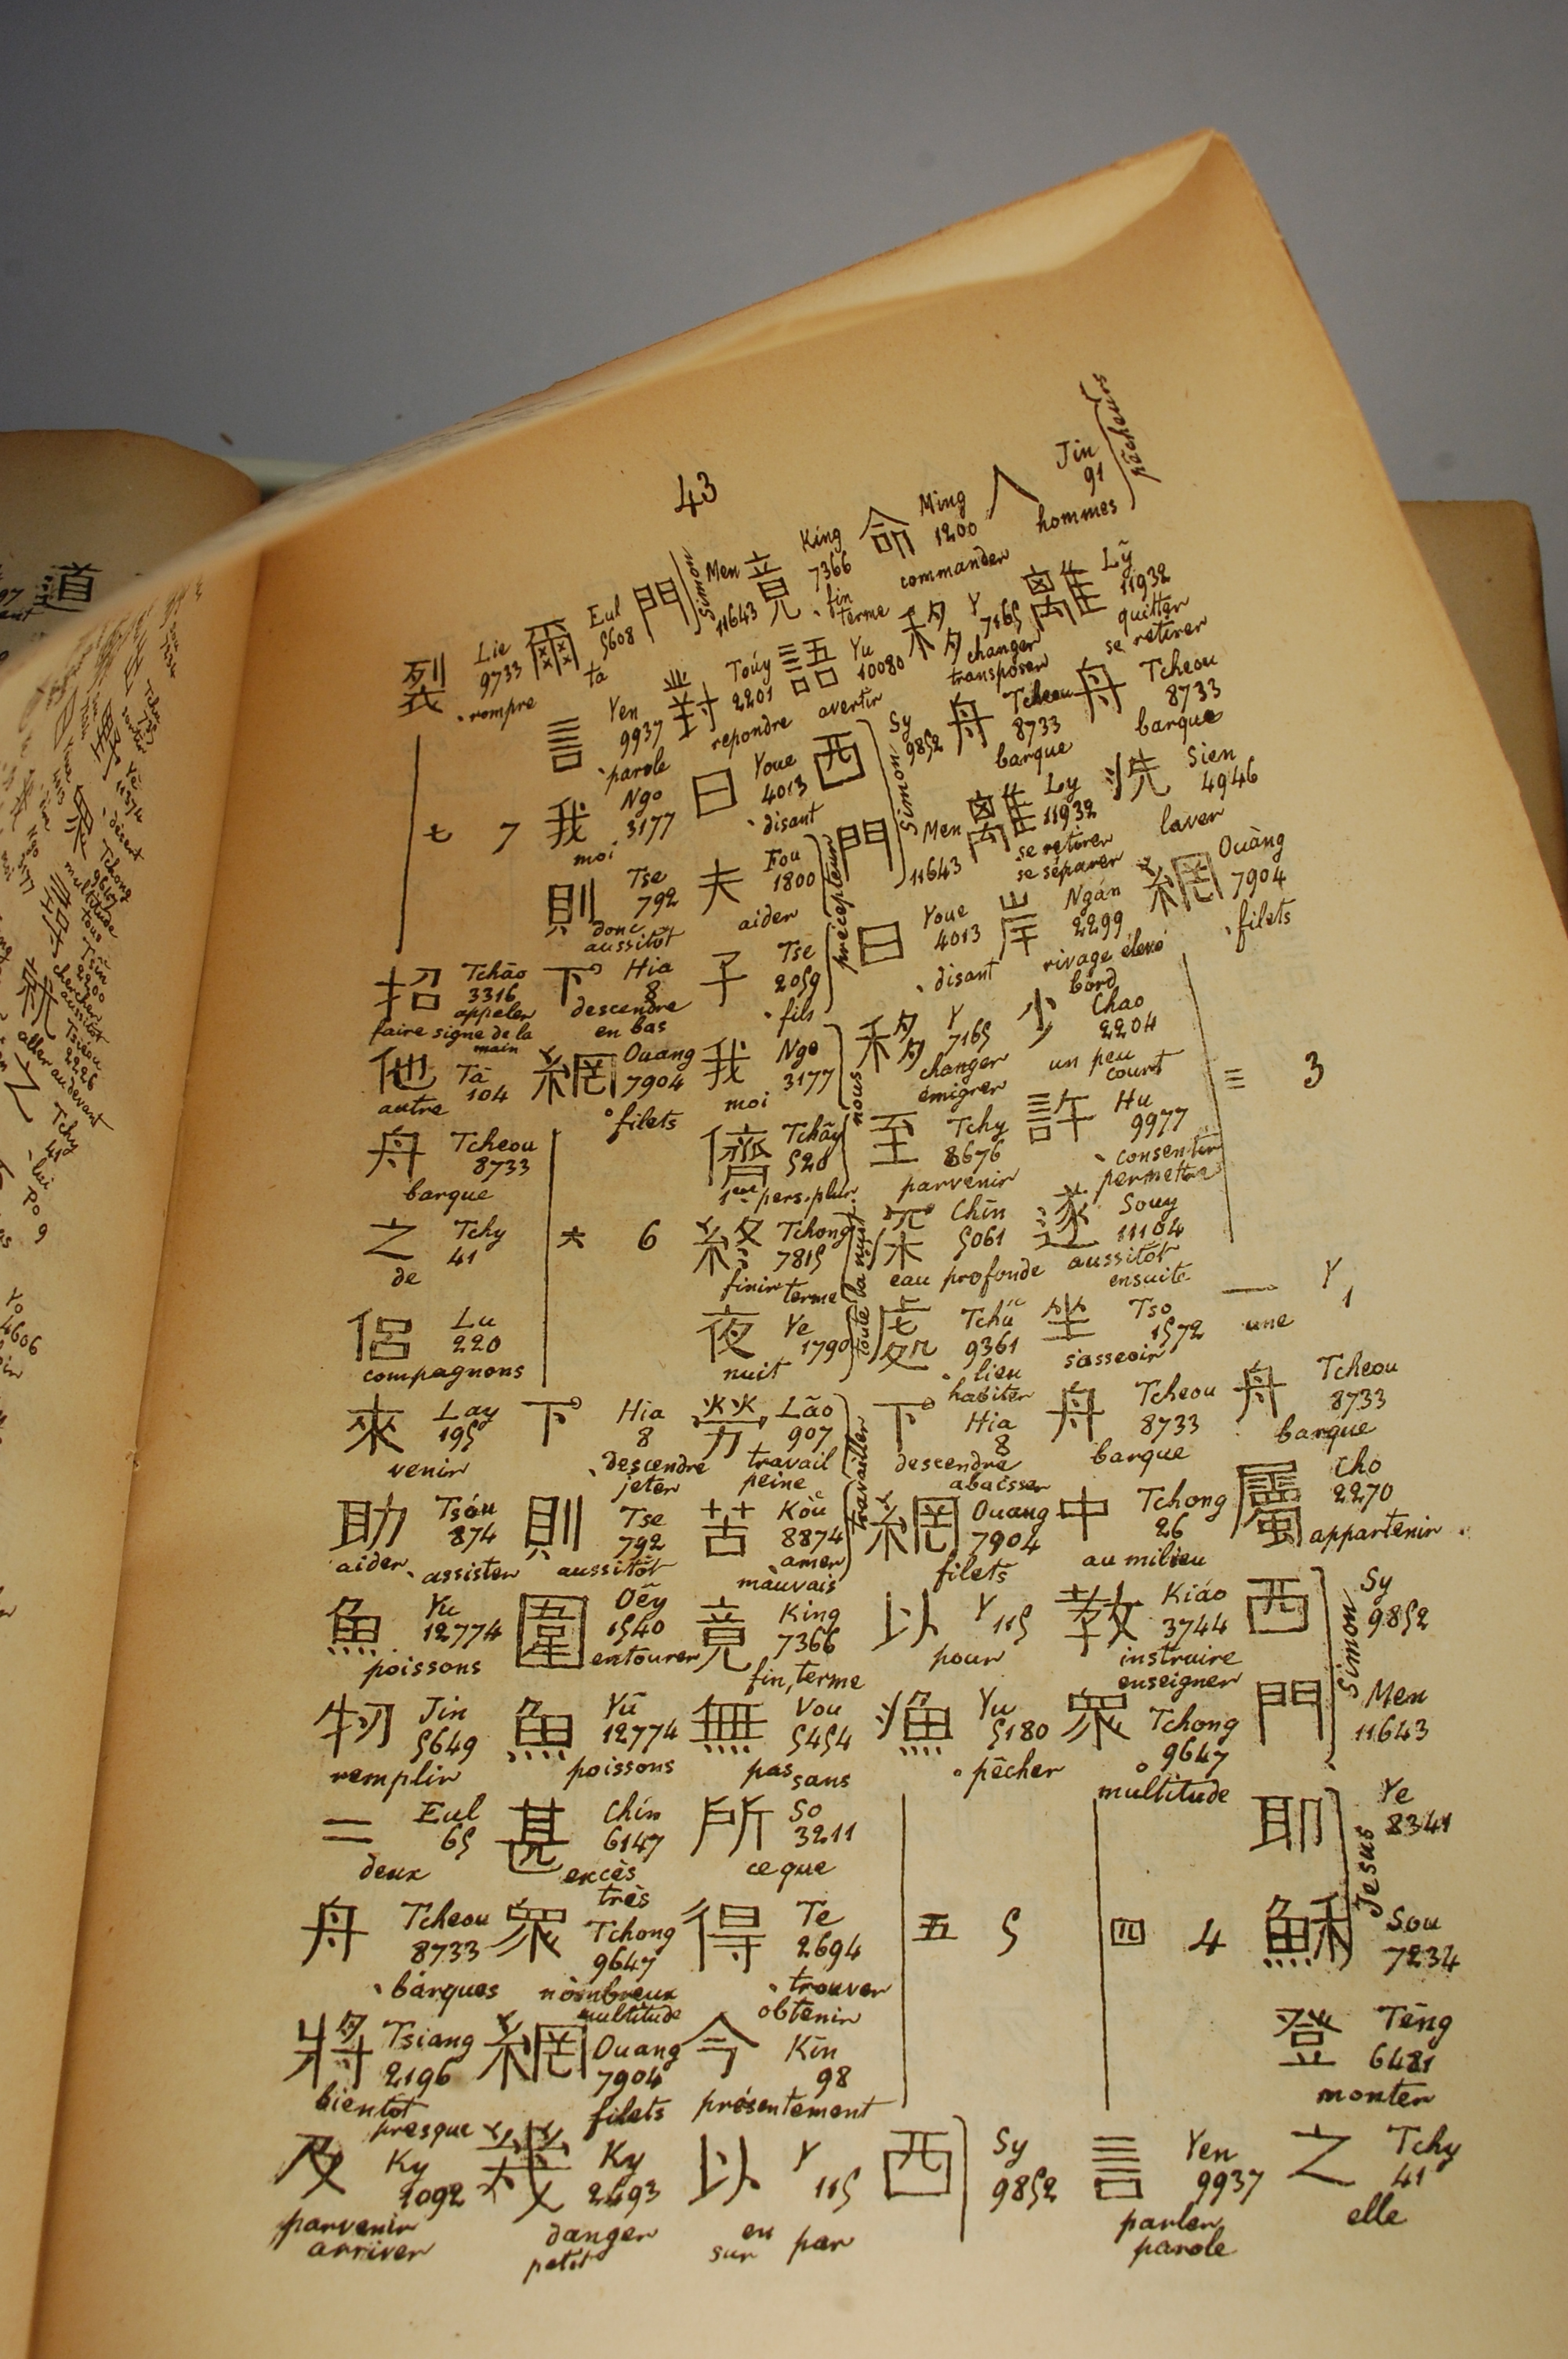 43
人 Jin 91
hommes
pêcheurs
離 Lȳ 11932
quitter
se retirer
舟 Tcheou 8733
barque
洗 Sien 4946
laver
網 Ouàng 7904
filets
三 3
一 Y 1
une
舟 Tcheou 8733
barque
屬 Cho 2270
appartenir
西 Sy 9852
門 Men 11643
Simon
耶 Ye 8341
穌 Sou 7234
Jesus
登 Tēng 6481
monter
之 Tchy 41
elle
命 Ming 1200
commander
移 Y 7165
changer
transposer
舟 Tcheou 8733
barque
離 Ly 11932
se retirer
se séparer
岸 Ngán 2299
rivage élevé
bord
少 Chao 2204
un peu
court
許 Hu 9977
consentir
permettre
遂 Souy 11104
aussitôt
ensuite
坐 Tso 1572
s'asseoir
舟 Tcheou 8733
barque
中 Tchong 26
au milieu
教 Kiáo 3744
instruire
enseigner
眾 Tchong 9647
multitude
四 4
言 Yen 9937
parler
parole
竟 King 7366
fin
terme
語 Yu 10080
avertir
西 Sy 9852
門 Men 11643
Simon
曰 Youe 4013
disant
移 Y 7165
changer
émigrer
至 Tchy 8676
parvenir
深 Chin 5061
eau profonde
處 Tchú 9361
lieu
habiter
下 Hia 8
descendre
abaisser
網 Ouang 7904
filets
以 Y 115
pour
漁 Yu 5180
pêcher
五 5
西 Sy 9852
門 Men 11643
Simon
對 Toúy 2201
repondre
曰 Youe 4013
disant
夫 Fou 1800
aider
子 Tse 2059
fils
précepteur
我 Ngo 3177
moi
儕 Tchāy 520
1ere pers. plur.
nous
終 Tchong 7815
finir terme
夜 Ye 1790
nuit
toute la nuit
勞 Lāo 907
travail
peine
苦 Kòu 8874
amer
mauvais
travailler
竟 King 7366
fin, terme
無 Vou 5454
pas sans
所 So 3211
ce que
得 Te 2694
trouver
obtenir
今 Kin 98
présentement
以 Y 115
en sur par
爾 Eul 5608
ta
言 Yen 9937
parole
我 Ngo 3177
moi
則 Tse 792
donc
aussitôt
下 Hia 8
descendre
en bas
網 Ouang 7904
filets
六 6
下 Hia 8
descendre
jeter
則 Tse 792
aussitôt
圍 Oêy 1540
entourer
魚 Yū 12774
poissons
甚 Chin 6147
excès
très
眾 Tchong 9647
nombreux
multitude
網 Ouang 7904
filets
幾 Ky 2493
danger
petit
裂 Lie 9733
rompre
七 7
招 Tchāo 3316
appeler
faire signe de la main
他 Tā 104
autre
舟 Tcheou 8733
barque
之 Tchy 41
de
侶 Lu 220
compagnons
來 Lay 195
venir
助 Tsóu 874
aider, assister
魚 Yu 12774
poissons
牣 Jin 5649
remplir
二 Eul 65
deux
舟 Tcheou 8733
barques
將 Tsiang 2196
bientôt
presque
及 Ky 1092
parvenir
arriver
道